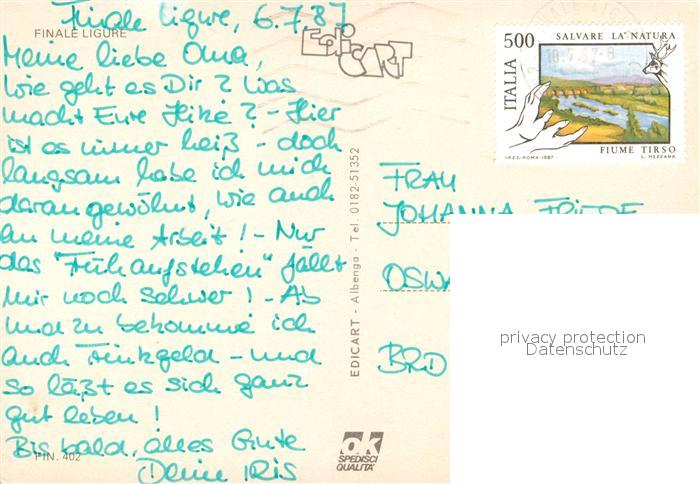 Finale Ligure, 6.7.87
FINALE LIGURE
Meine liebe Oma,
wie geht es Dir? Was
macht Eure Hitze? - Hier
ist es immer heiß - doch
langsam habe ich mich
daran gewöhnt, wie auch
an meine Arbeit! - Nur
das "Frühaufstehen" fällt
mir noch schwer! - Ab
und zu bekomme ich
auch Trinkgeld - und
so läßt es sich ganz
gut leben!
Bis bald, alles Gute
Deine IRIS
FIN. 402
EdiCART
EDICART - Albenga - Tel. 0182-51352
OK
SPEDISCI
QUALITA'
500
SALVARE LA NATURA
ITALIA
10.7.87-8
FIUME TIRSO
I.P.Z.S.-ROMA-1987
L. MEZZANA
FRAU
JOHANNA FRIEDE
OSWA
BRD
privacy protection
Datenschutz